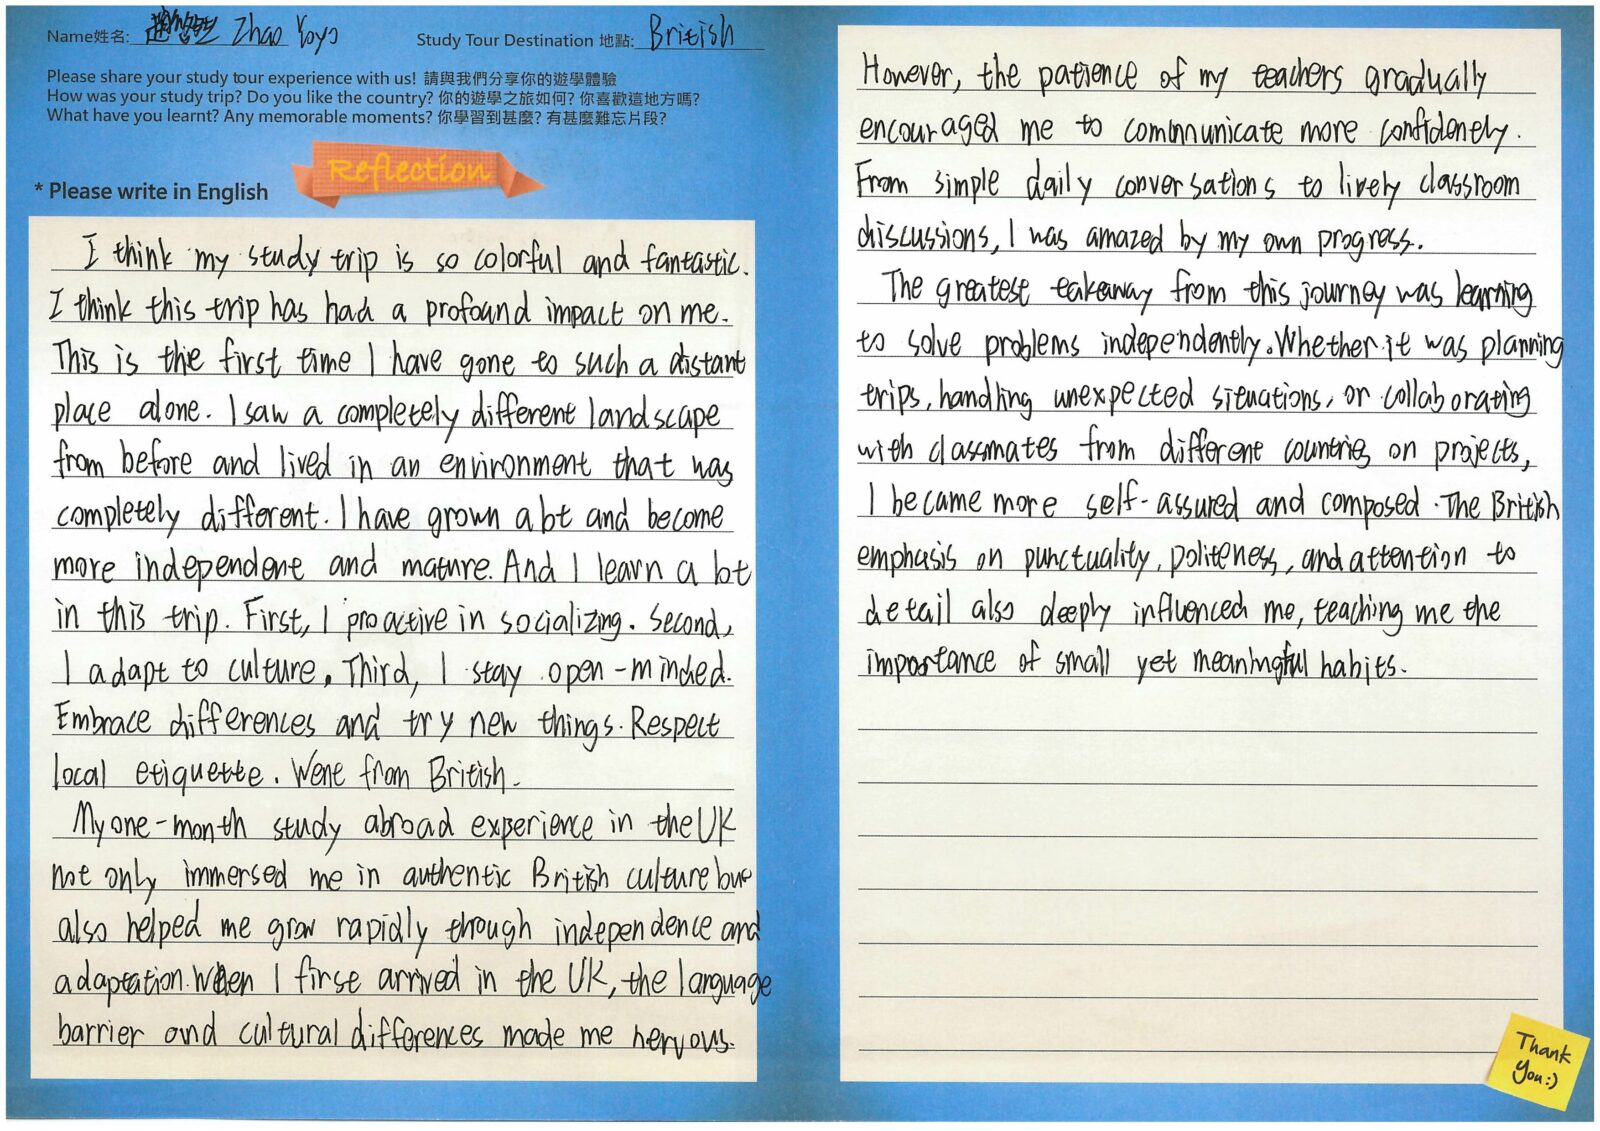 Name姓名: Zhao Yoyo
Study Tour Destination 地點: British
Please share your study tour experience with us! 請與我們分享你的遊學體驗
How was your study trip? Do you like the country? 你的遊學之旅如何? 你喜歡這地方嗎?
What have you learnt? Any memorable moments? 你學習到甚麼? 有甚麼難忘片段?
Reflection
* Please write in English
I think my study trip is so colorful and fantastic.
I think this trip has had a profoand impact on me.
This is the first time I have gone to such a distant
place alone. I saw a completely different landscape
from before and lived in an environment that was
completely different. I have grown a lot and become
more independent and mature. And I learn a lot
in this trip. First, I proactive in socializing. Second,
I adapt to culture. Third, I stay open-minded.
Embrace differences and try new things. Respect
local etiquette. Went from British.
My one-month study abroad experience in the UK
not only immersed me in authentic British culture but
also helped me grow rapidly through independence and
adaptation. When I first arrived in the UK, the language
barrier and cultural differences made me nervous.
However, the patience of my teachers gradually
encouraged me to communicate more confidently.
From simple daily conversations to lively classroom
discussions, I was amazed by my own progress.
The greatest takeaway from this journey was learning
to solve problems independently. Whether it was planning
trips, handling unexpected situations, or collaborating
with classmates from different countries on projects,
I became more self-assured and composed. The British
emphasis on punctuality, politeness, and attention to
detail also deeply influenced me, teaching me the
importance of small yet meaningful habits.
Thank
You:)